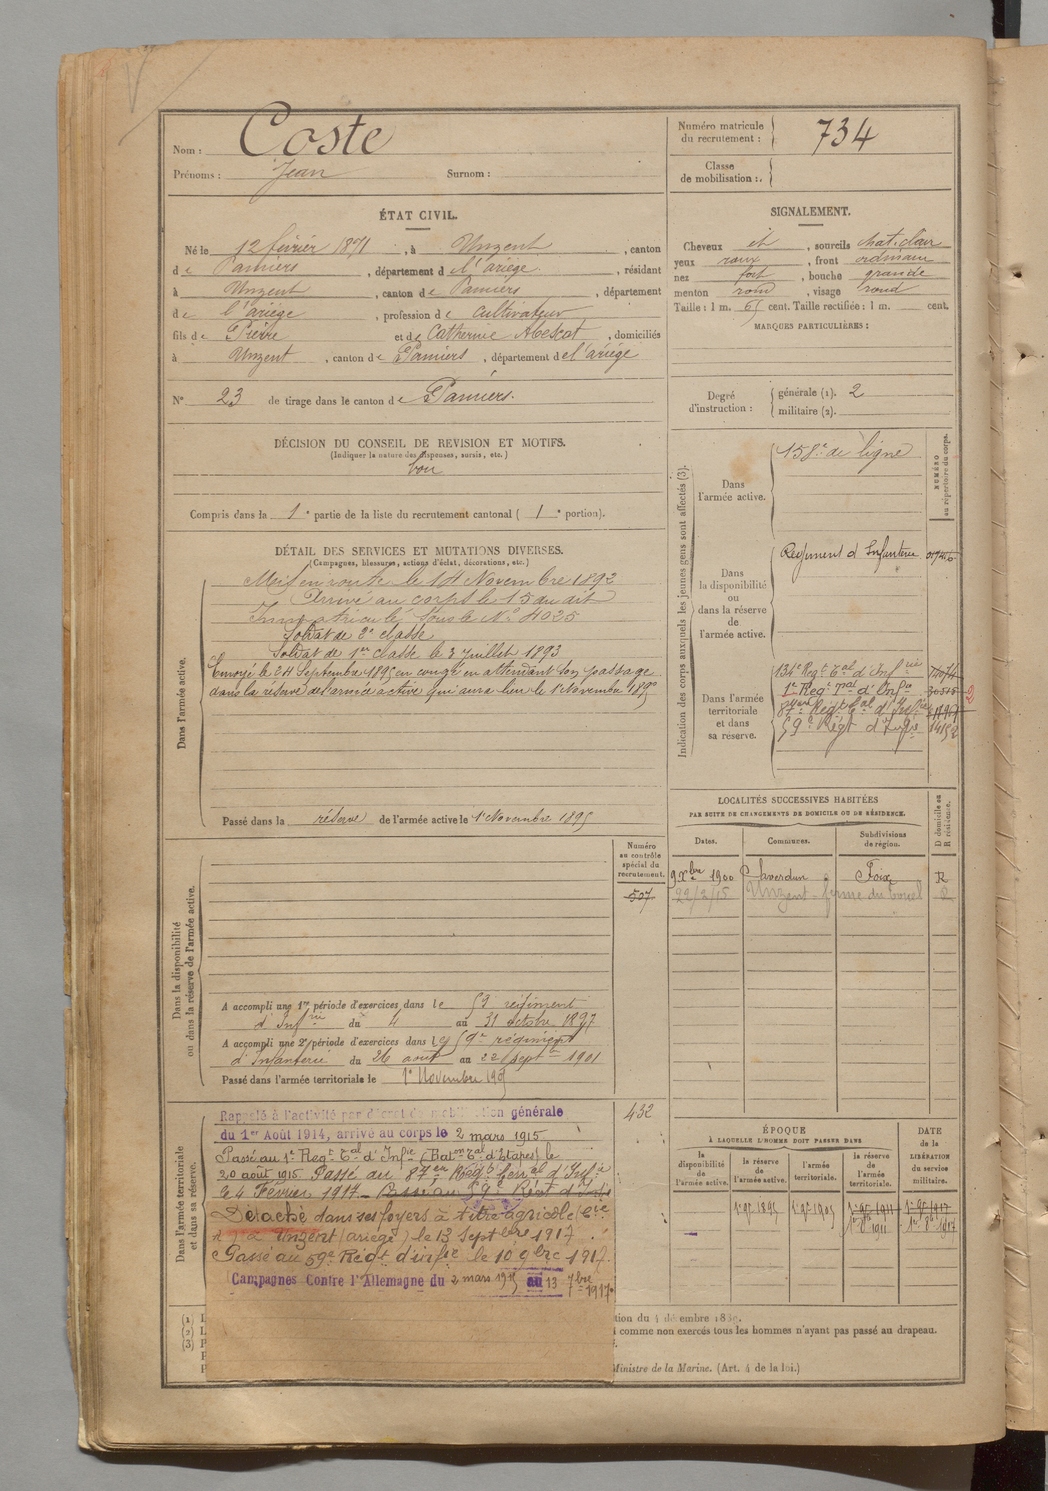 Nom : Coste
Prénoms : Jean Surnom :
Numéro matricule
du recrutement : 734
Classe
de mobilisation :
ÉTAT CIVIL.
Né le 12 février 1871, à Unzent, canton
de Pamiers, département de l'ariège, résidant
à Unzent, canton de Pamiers, département
de l'ariège, profession de cultivateur
fils de Pierre et de Catherine Abescat, domiciliés
à Unzent, canton de Pamiers, département de l'ariège
N° 23 de tirage dans le canton de Pamiers.
SIGNALEMENT.
Cheveux et, sourcils chat. clair
yeux roux, front ordinaire
nez fort, bouche grande
menton rond, visage rond
Taille : 1 m. 65 cent. Taille rectifiée : 1 m. cent.
MARQUES PARTICULIÈRES :
Degré
d'instruction : générale (1). 2
militaire (2).
DÉCISION DU CONSEIL DE REVISION ET MOTIFS.
(Indiquer la nature des dispenses, sursis, etc.)
bon
Compris dans la 1e partie de la liste du recrutement cantonal ( 1e portion).
DÉTAIL DES SERVICES ET MUTATIONS DIVERSES.
(Campagnes, blessures, actions d'éclat, décorations, etc.)
Dans l'armée active.
Mis en route le 14 Novembre 1892
Arrivé au corps le 15 du dit
Immatriculé sous le N° 4025
Soldat de 2e classe
Soldat de 1er classe le 3 Juillet 1893
Envoyé le 24 Septembre 1895 en congé en attendant son passage
dans la réserve de l'armée active qui aura lieu le 1er Novembre 1895
Passé dans la réserve de l'armée active le 1er Novembre 1895
Indication des corps auxquels les jeunes gens sont affectés (3).
NUMÉRO
au répertoire du corps.
Dans
l'armée active.
158e de ligne
Dans
la disponibilité
ou
dans la réserve
de
l'armée active.
Régiment d'Infanterie
Dans l'armée
territoriale
et dans
sa réserve.
134e Regt Tal d'Infrie
1er Regt Tal d'Infie
87eme Régt Tal d'Infie
59e Régt d'Infie
2
LOCALITÉS SUCCESSIVES HABITÉES
PAR SUITE DE CHANGEMENTS DE DOMICILE OU DE RÉSIDENCE.
Dates. Communes. Subdivisions
de région. D domicile ou
R résidence.
9 Xbre 1900 Saverdun Foix R
22/3/15 Unzent - ferme du R
Dans la disponibilité
ou dans la réserve de l'armée active.
Numéro
au contrôle
spécial du
recrutement.
507
A accompli une 1re période d'exercices dans le 59 régiment
d'Infrie du 4 au 31 octobre 1897
A accompli une 2e période d'exercices dans le 59e régiment
d'Infanterie du 26 août au 22 septbre 1901
Passé dans l'armée territoriale le 1er Novembre 1905
Dans l'armée territoriale
et dans sa réserve.
432
Rappelé à l'activité par décret de mobilisation générale
du 1er Août 1914, arrivé au corps le 2 mars 1915.
Passé au 1er Regt Tal d'Infie (Baton Tal d'Etapes) le
20 août 1915 Passé au 87em Régt Terral d'Infie
le 4 Février 1917 - Passé au 59e Régt d'Infie
Détaché dans ses foyers à titre agricole
à Unzent (ariège) le 13 Septbre 1917
Passé au 59e Régt d'infie le 10 9bre 1917.
Campagnes Contre l'Allemagne du 2 mars 1915 au 13 7bre
1917.
ÉPOQUE
À LAQUELLE L'HOMME DOIT PASSER DANS
la
disponibilité
de
l'armée active.
la réserve
de
l'armée active.
l'armée
territoriale.
la réserve
de
l'armée
territoriale.
DATE
de la
LIBÉRATION
du service
militaire.
1er 9e 1895 1er 9e 1905 1er 9e 1911 1er 9e 1917
(1)
(2)
(3)
comme non exercés tous les hommes n'ayant pas passé au drapeau.
Ministre de la Marine. (Art. 4 de la loi.)